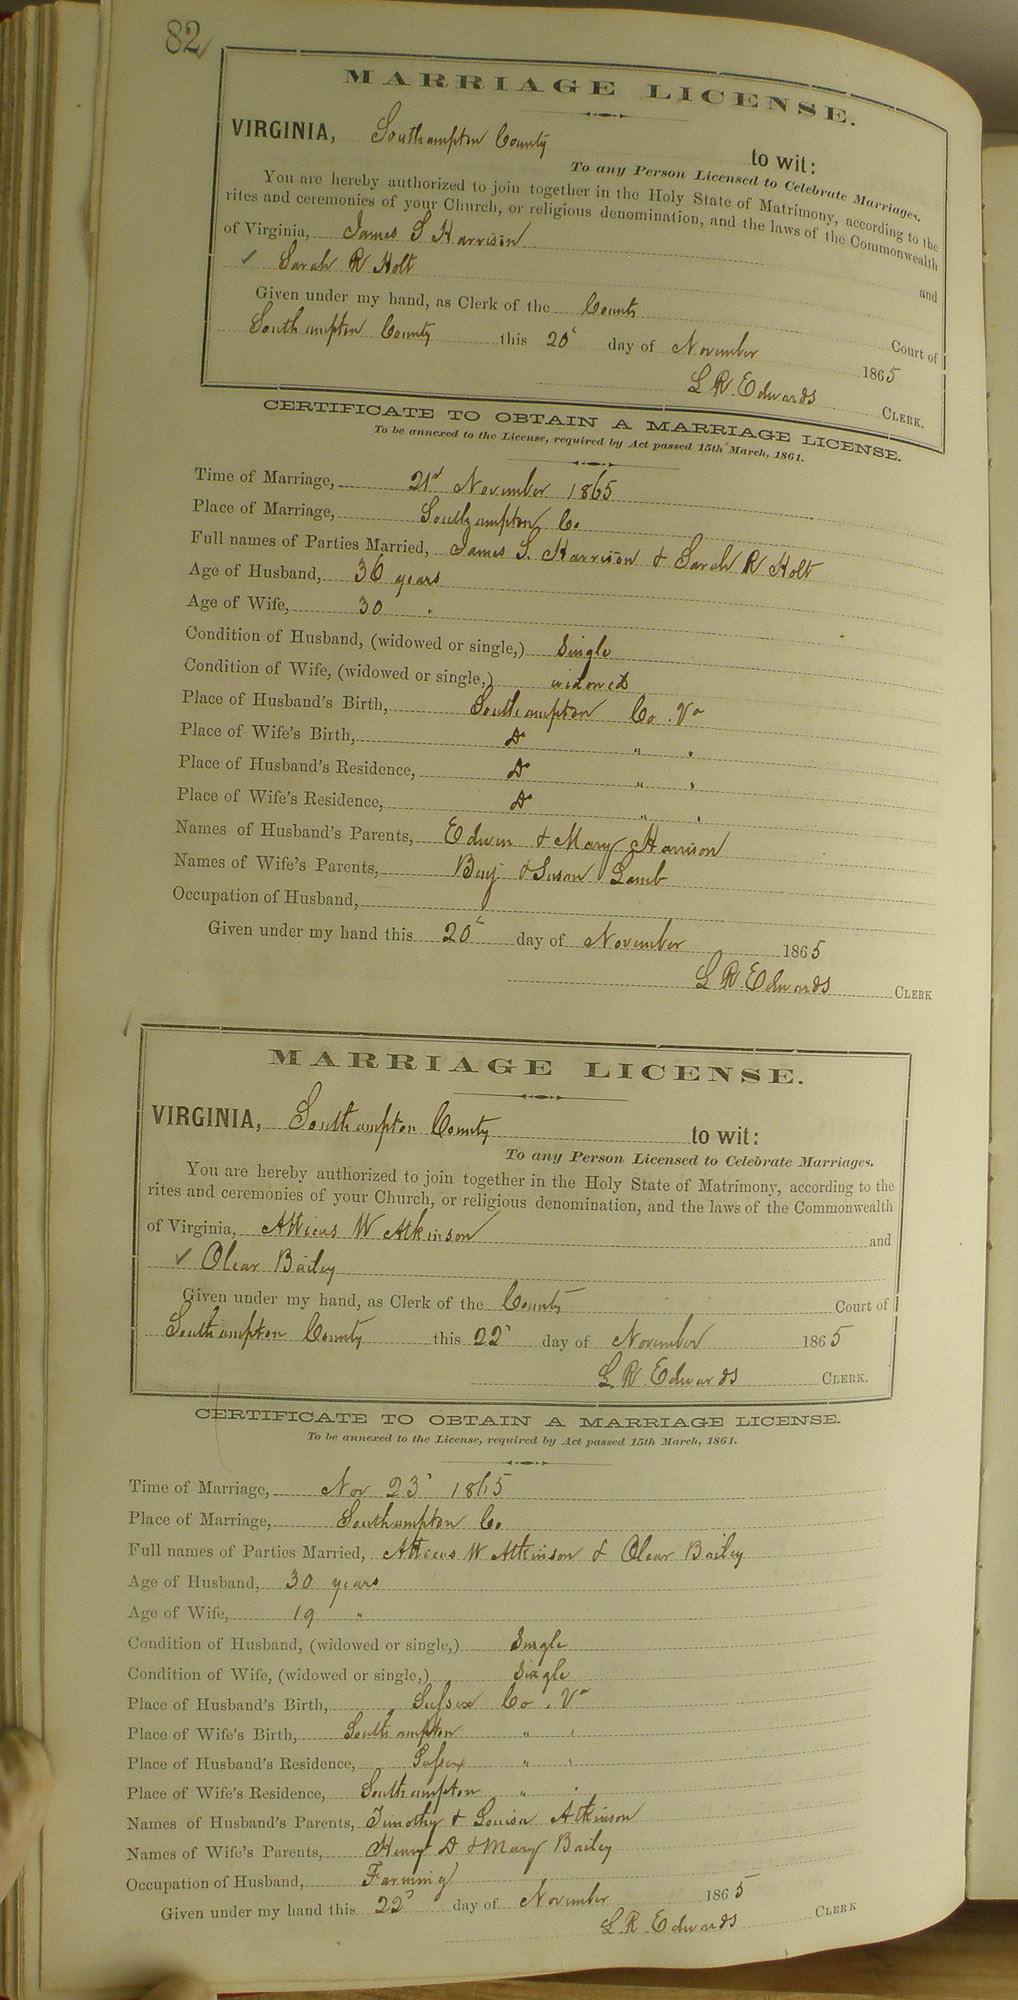 82
MARRIAGE LICENSE.
VIRGINIA, Southampton County to wit:
To any Person Licensed to Celebrate Marriages.
You are hereby authorized to join together in the Holy State of Matrimony, according to the
rites and ceremonies of your Church, or religious denomination, and the laws of the Commonwealth
of Virginia, James S Harrison and
✓ Sarah R Holt
Given under my hand, as Clerk of the County Court of
Southampton County this 20' day of November 1865
L R. Edwards CLERK.
CERTIFICATE TO OBTAIN A MARRIAGE LICENSE.
To be annexed to the License, required by Act passed 15th March, 1861.
Time of Marriage, 21st November 1865
Place of Marriage, Southampton Co.
Full names of Parties Married, James S. Harrison & Sarah R Holt
Age of Husband, 36 years
Age of Wife, 30 "
Condition of Husband, (widowed or single,) Single
Condition of Wife, (widowed or single,) widowed
Place of Husband's Birth, Southampton Co. Va
Place of Wife's Birth, Do " "
Place of Husband's Residence, Do " "
Place of Wife's Residence, Do " "
Names of Husband's Parents, Edwin & Mary Harrison
Names of Wife's Parents, Benj & Susan Lamb
Occupation of Husband,
Given under my hand this 20' day of November 1865
L R. Edwards CLERK
MARRIAGE LICENSE.
VIRGINIA, Southampton County to wit:
To any Person Licensed to Celebrate Marriages.
You are hereby authorized to join together in the Holy State of Matrimony, according to the
rites and ceremonies of your Church, or religious denomination, and the laws of the Commonwealth
of Virginia, Atticus W Atkinson and
✓ Olear Bailey
Given under my hand, as Clerk of the County Court of
Southampton County this 22' day of November 1865
L R. Edwards CLERK.
CERTIFICATE TO OBTAIN A MARRIAGE LICENSE.
To be annexed to the License, required by Act passed 15th March, 1861.
Time of Marriage, Nov 23' 1865
Place of Marriage, Southampton Co.
Full names of Parties Married, Atticus W Atkinson & Olear Bailey
Age of Husband, 30 years
Age of Wife, 19 "
Condition of Husband, (widowed or single,) Single
Condition of Wife, (widowed or single,) Single
Place of Husband's Birth, Sussex Co. Va
Place of Wife's Birth, Southampton " "
Place of Husband's Residence, Sussex " "
Place of Wife's Residence, Southampton " "
Names of Husband's Parents, Timothy & Louisa Atkinson
Names of Wife's Parents, Henry D & Mary Bailey
Occupation of Husband, Farming
Given under my hand this 22' day of November 1865
L. R. Edwards CLERK